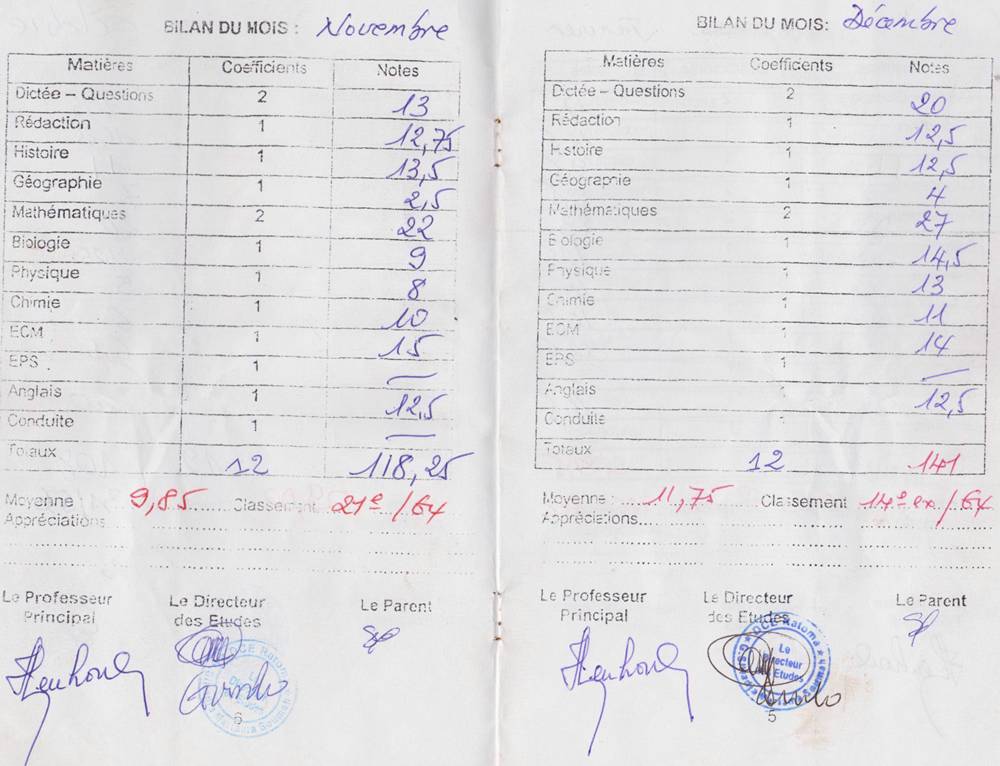 BILAN DU MOIS : Novembre
Matières Coefficients Notes
Dictée – Questions 2 13
Rédaction 1 12,75
Histoire 1 13,5
Géographie 1 2,5
Mathématiques 2 22
Biologie 1 9
Physique 1 8
Chimie 1 10
ECM 1 15
EPS . 1 —
Anglais 1 12,5
Conduite —
Totaux 12 118,25
Moyenne 9,85 Classement 21e /64
Appréciations
Le Professeur Principal
Le Directeur des Etudes
Le Parent
6
BILAN DU MOIS: Décembre
Matières Coefficients Notes
Dictée – Questions 2 20
Rédaction 1 12,5
Histoire 1 12,5
Géographie 1 4
Mathématiques 2 27
Biologie 1 14,5
Physique 1 13
Chimie 1 11
ECM 1 14
EPS 1 —
Anglais 1 12,5
Conduite 1
Totaux 12 141
Moyenne : 11,75 Classement 14e ex /64
Appréciations
Le Professeur Principal
Le Directeur des Etudes
Le Parent
DCE Ratoma
Le Directeur Etudes
5